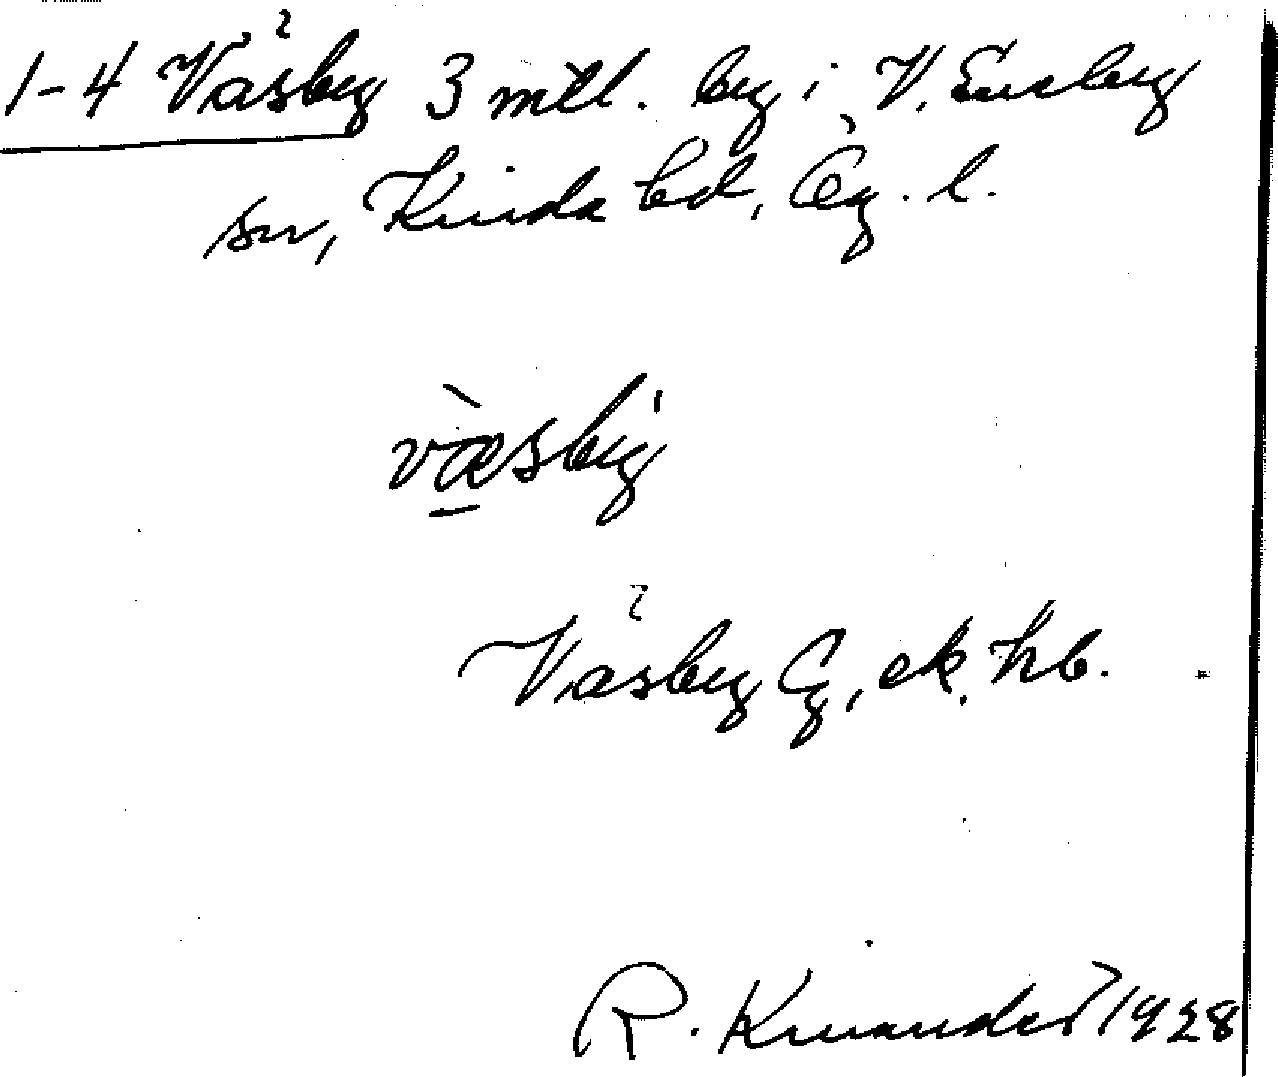 1-4 Väsby 3 mtl. by i V. Eneby
sn, Kinda hd, Ög. l.
v̀æsby
Väsby G, ek. kb.
R. Kinander 1928